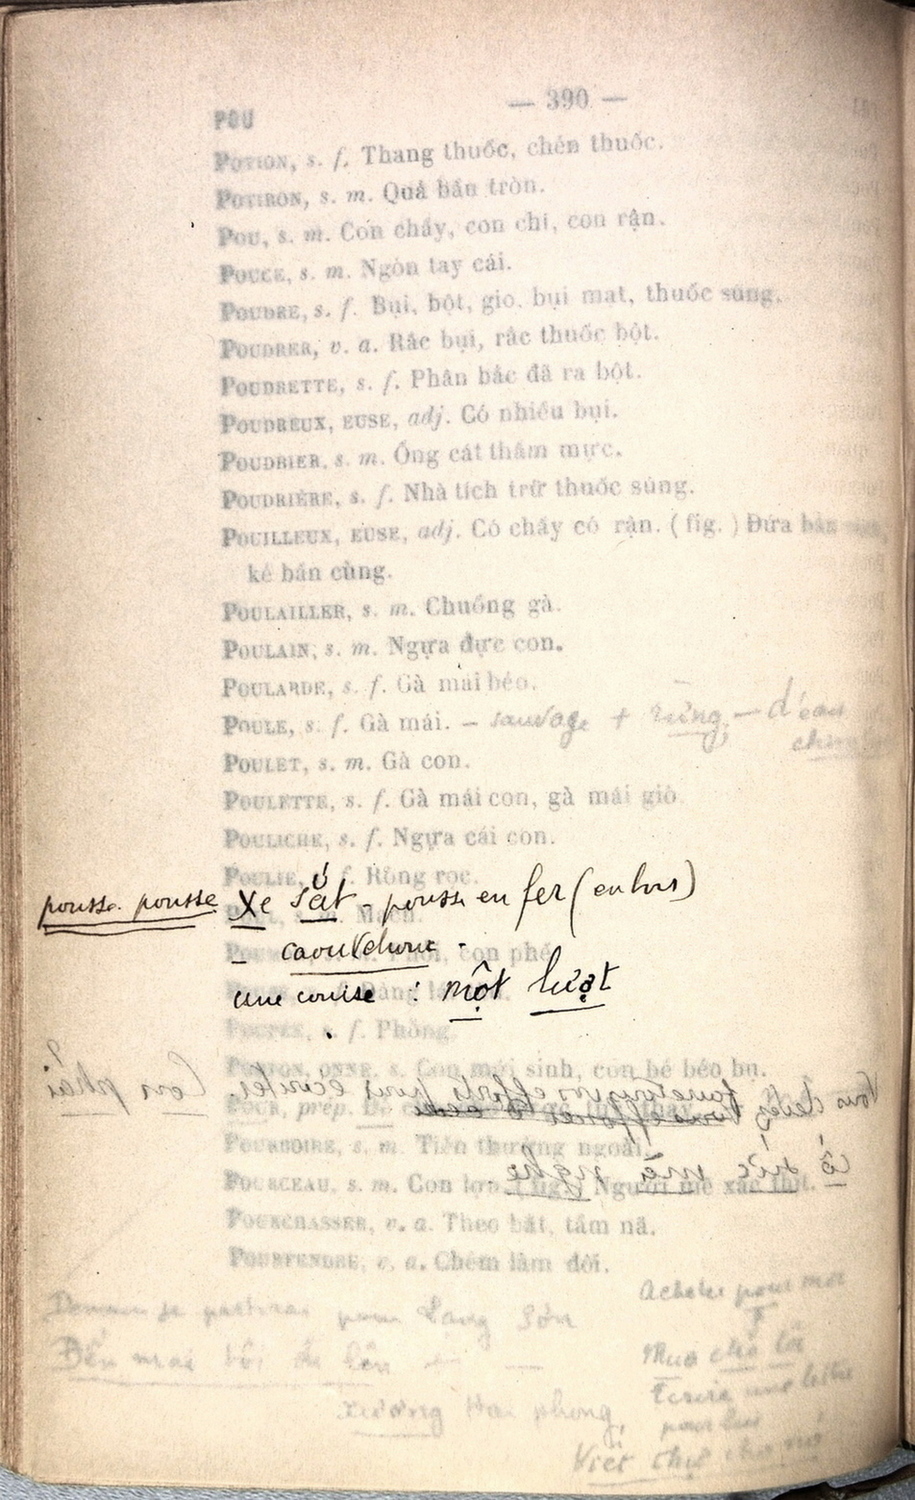 — 390 —
POU
POTION, s. f. Thang thuốc, chén thuốc.
POTIRON, s. m. Quả bầu tròn.
POU, s. m. Con chấy, con chí, con rận.
POUCE, s. m. Ngón tay cái.
POUDRE, s. f. Bụi, bột, gio, bụi mạt, thuốc súng.
POUDRER, v. a. Rắc bụi, rắc thuốc bột.
POUDRETTE, s. f. Phân bắc đã ra bột.
POUDREUX, EUSE, adj. Có nhiều bụi.
POUDRIER, s. m. Ống cát thấm mực.
POUDRIÈRE, s. f. Nhà tích trữ thuốc súng.
POUILLEUX, EUSE, adj. Có chấy có rận. (fig.) Đứa
kẻ bần cùng.
POULAILLER, s. m. Chuồng gà.
POULAIN, s. m. Ngựa đực con.
POULARDE, s. f. Gà mái béo.
POULE, s. f. Gà mái. – sauvage + rừng – d'eau
POULET, s. m. Gà con.
POULETTE, s. f. Gà mái con, gà mái giò
POULICHE, s. f. Ngựa cái con.
POULIE, s. f. Ròng rọc.
pousse-pousse Xe sắt – pousse en fer (en bois)
– caoutchouc –
une course : một lượt
POUPÉE, s. f. Phỗng.
POUPON, ONNE, s. Con mới sinh, con bé béo bụ.
Vous devez faire efforts pour écouter. Con phải
POUR, prép.
POURBOIRE, s. m. Tiền thưởng ngoài.
có sức mà nghe
POURCEAU, s. m. Con lợn. (fig.) Người mê xác thịt.
POURCHASSER, v. a. Theo bắt, tầm nã.
POURFENDRE, v. a. Chém làm đôi.
Acheter pour moi
Demain je partirai pour Lang Sơn
Mua cho tôi
Đến mai tôi đi lên — —
Ecrire une lettre
xuống Hai phong
pour lui
Viết thư cho nó